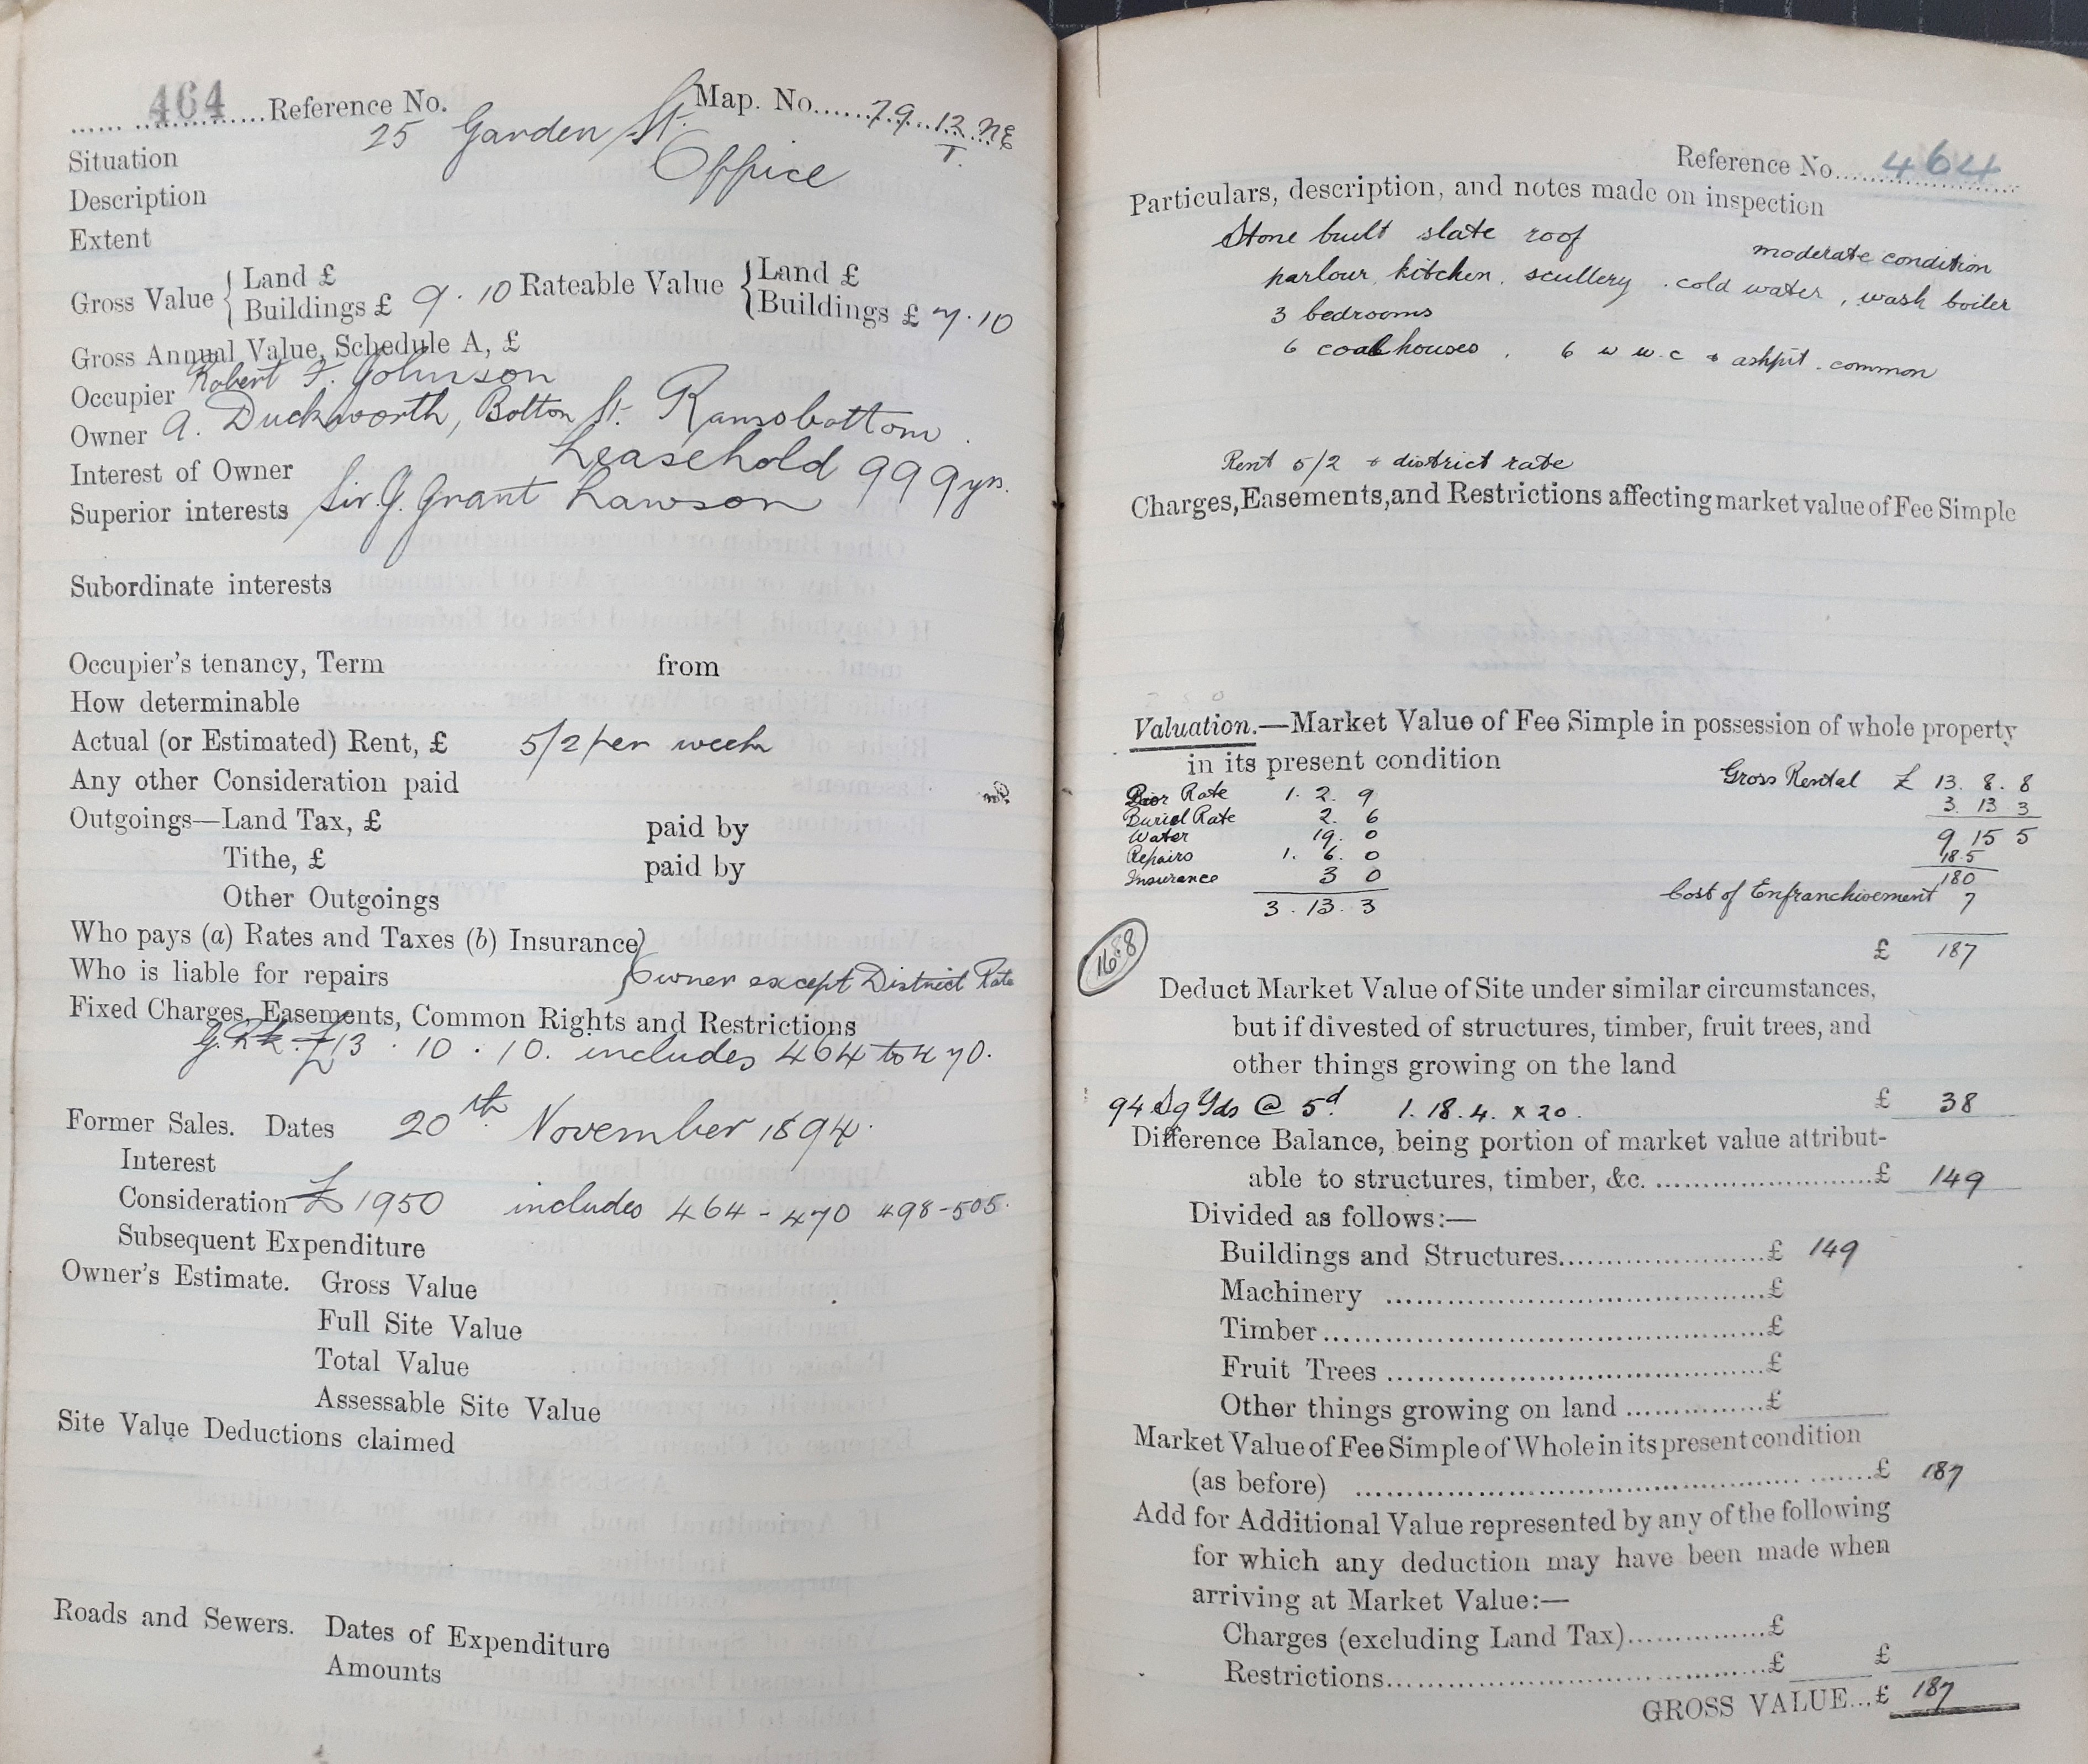 464 Reference No. Map. No. 79. 12 NE
T.
Situation 25 Garden St.
Description Office
Extent
Gross Value { Land £ Rateable Value { Land £
Buildings £ 9.10 Buildings £ 7.10
Gross Annual Value, Schedule A, £
Occupier Robert F. Johnson
Owner A. Duckworth, Bolton St. Ramsbottom.
Interest of Owner Leasehold 999 yrs.
Superior interests Sir J. Grant Lawson
Subordinate interests
Occupier's tenancy, Term from
How determinable
Actual (or Estimated) Rent, £ 5/2 per week
Any other Consideration paid
Outgoings—Land Tax, £ paid by
Tithe, £ paid by
Other Outgoings
Who pays (a) Rates and Taxes (b) Insurance }
Who is liable for repairs { Owner except District Rate
Fixed Charges, Easements, Common Rights and Restrictions
£13.10.10. includes 464 to 470.
Former Sales. Dates 20th November 1894.
Interest
Consideration £1950 includes 464-470 498-505.
Subsequent Expenditure
Owner's Estimate. Gross Value
Full Site Value
Total Value
Assessable Site Value
Site Value Deductions claimed
Roads and Sewers. Dates of Expenditure
Amounts
Reference No. 464
Particulars, description, and notes made on inspection
Stone built slate roof moderate condition
parlour, kitchen, scullery. cold water, wash boiler
3 bedrooms
6 coalhouses, 6 w w.c & ashpit. common
Rent 5/2 + district rate
Charges, Easements, and Restrictions affecting market value of Fee Simple
Valuation.—Market Value of Fee Simple in possession of whole property
in its present condition Gross Rental £ 13. 8. 8
Poor Rate 1. 2. 9 3. 13 3
Burial Rate 2. 6
Water 19. 0 9 15 5
Repairs 1. 6. 0 18.5
Insurance 3 0 180
3. 13. 3 Cost of Enfranchisement 7
168.8 £ 187
Deduct Market Value of Site under similar circumstances,
but if divested of structures, timber, fruit trees, and
other things growing on the land
94 Sq Yds @ 5d 1.18.4. x 20. £ 38
Difference Balance, being portion of market value attribut-
able to structures, timber, &c. £ 149
Divided as follows:—
Buildings and Structures £ 149
Machinery £
Timber £
Fruit Trees £
Other things growing on land £
Market Value of Fee Simple of Whole in its present condition
(as before) £ 187
Add for Additional Value represented by any of the following
for which any deduction may have been made when
arriving at Market Value:—
Charges (excluding Land Tax) £
Restrictions £ £
GROSS VALUE... £ 187